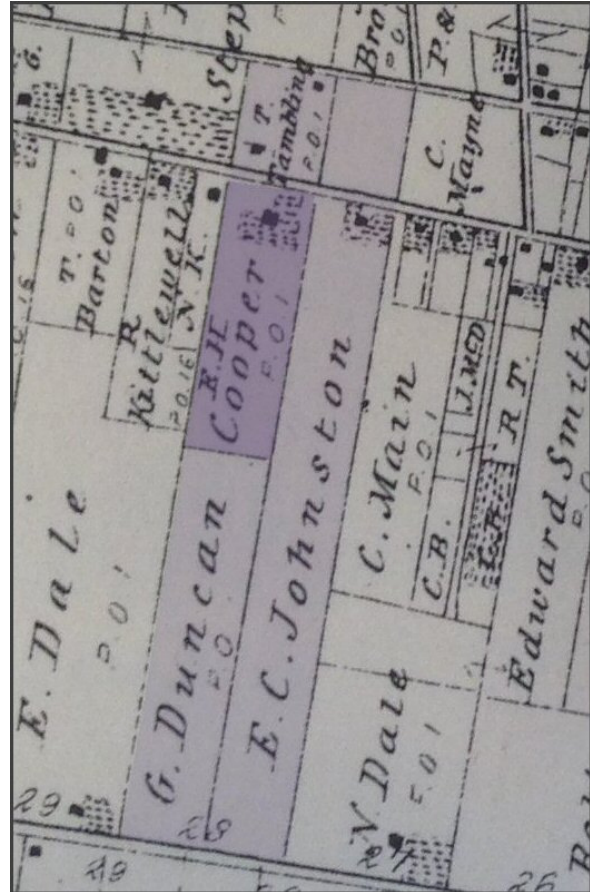 G.
Step
Bro
P.O.1
P. &
T.
Tambling
P.O.1
C.
Mayne
T. P.O.1
Barton
R
Kittlewell
P.O.16
N.K.
E.H.
Cooper
P.O.1
E. Dale
P.O.1
G. Duncan
P.O.
E.C. Johnston
C. Main
P.O.1
C.B.
J.McD
R T.
Edward Smith
P.O.
N Dale
P.O.1
29
28
27
26
29